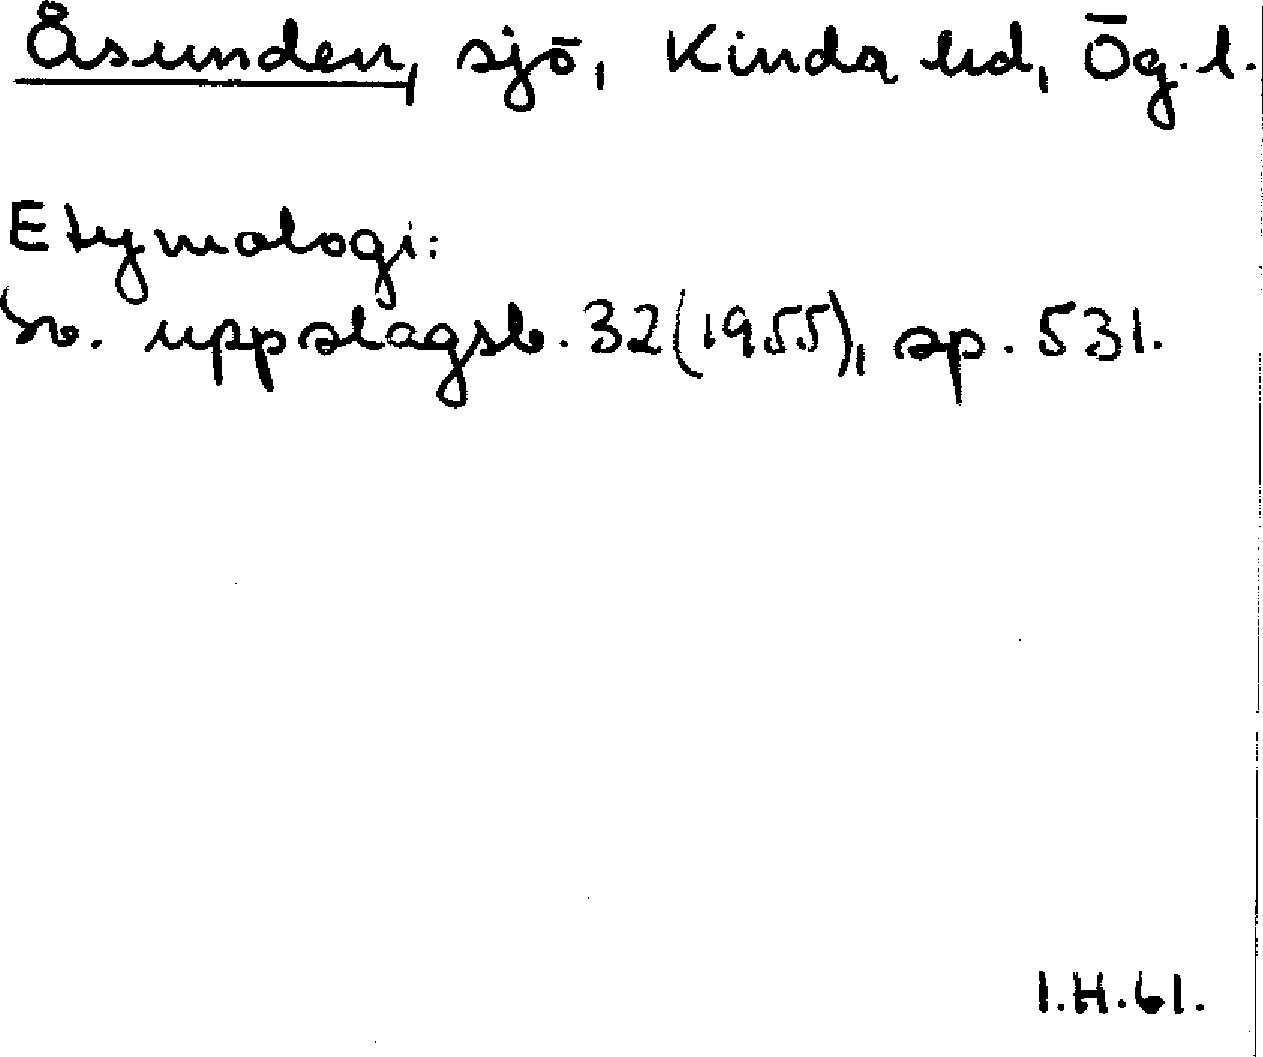 Åsunden, sjö, Kinda hd, Ög. l.
Etymologi:
Sv. uppslagsb. 32 (1955), sp. 531.
I.H. 61.